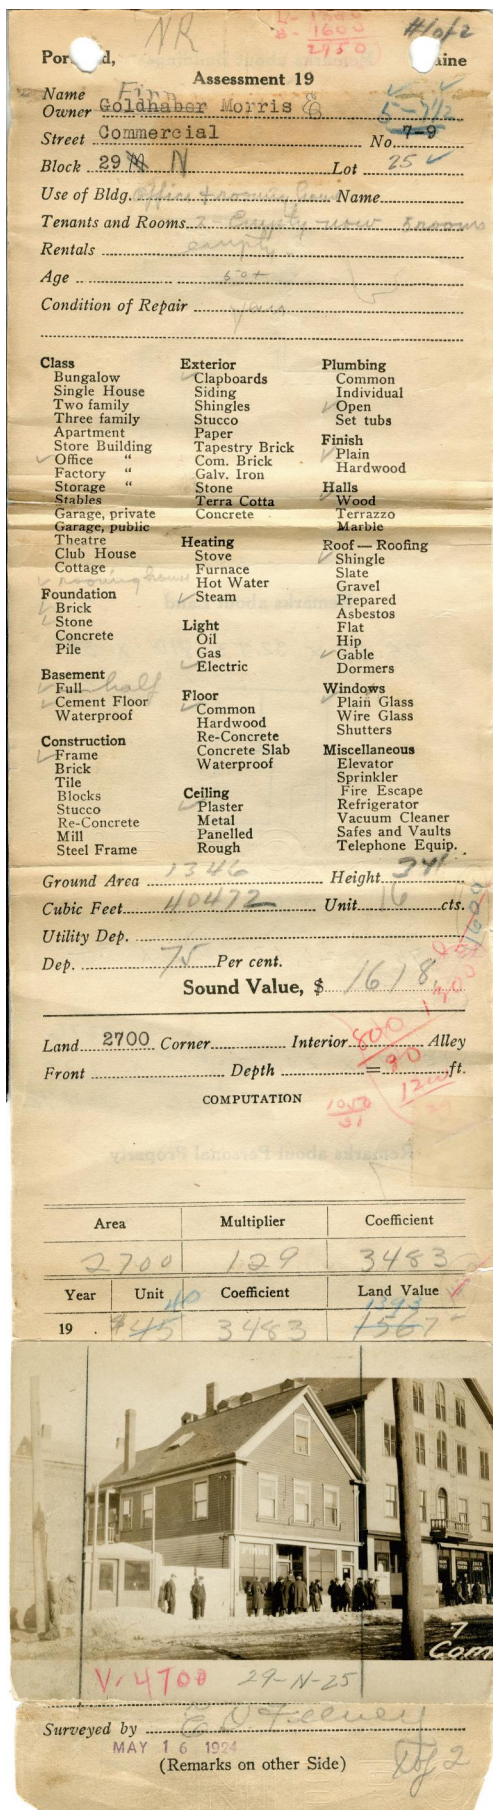 NR
L- 1350
B- 1600
2950
#1 of 2
Portland, Maine
Assessment 19
Name Finn
Owner Goldhaber Morris E
5-7 1/2
Street Commercial No. 7-9
Block 29 M N Lot 25
Use of Bldg. Office & rooming house Name
Tenants and Rooms 2- Empty now 5 rooms
Rentals empty
Age 50+
Condition of Repair fair
Class
Bungalow
Single House
Two family
Three family
Apartment
Store Building
Office "
Factory "
Storage "
Stables
Garage, private
Garage, public
Theatre
Club House
Cottage
rooming house
Foundation
Brick
Stone
Concrete
Pile
Basement
Full half
Cement Floor
Waterproof
Construction
Frame
Brick
Tile
Blocks
Stucco
Re-Concrete
Mill
Steel Frame
Exterior
Clapboards
Siding
Shingles
Stucco
Paper
Tapestry Brick
Com. Brick
Galv. Iron
Stone
Terra Cotta
Concrete
Heating
Stove
Furnace
Hot Water
Steam
Light
Oil
Gas
Electric
Floor
Common
Hardwood
Re-Concrete
Concrete Slab
Waterproof
Ceiling
Plaster
Metal
Panelled
Rough
Plumbing
Common
Individual
Open
Set tubs
Finish
Plain
Hardwood
Halls
Wood
Terrazzo
Marble
Roof — Roofing
Shingle
Slate
Gravel
Prepared
Asbestos
Flat
Hip
Gable
Dormers
Windows
Plain Glass
Wire Glass
Shutters
Miscellaneous
Elevator
Sprinkler
Fire Escape
Refrigerator
Vacuum Cleaner
Safes and Vaults
Telephone Equip.
Ground Area 1346 Height 34'
Cubic Feet 40472 Unit 16 cts.
Utility Dep.
Dep. 75 Per cent.
Sound Value, $ 1618
1600
1300
Land 2700 Corner Interior Alley
800
90
1200
Front Depth = ft.
COMPUTATION
1050
31
Area Multiplier Coefficient
2700 129 3483
Year Unit Coefficient Land Value
40 1393
19 $45 3483 1567
7
Com
V-4700 29-N-25
Surveyed by
MAY 16 1924
(Remarks on other Side)
1 of 2